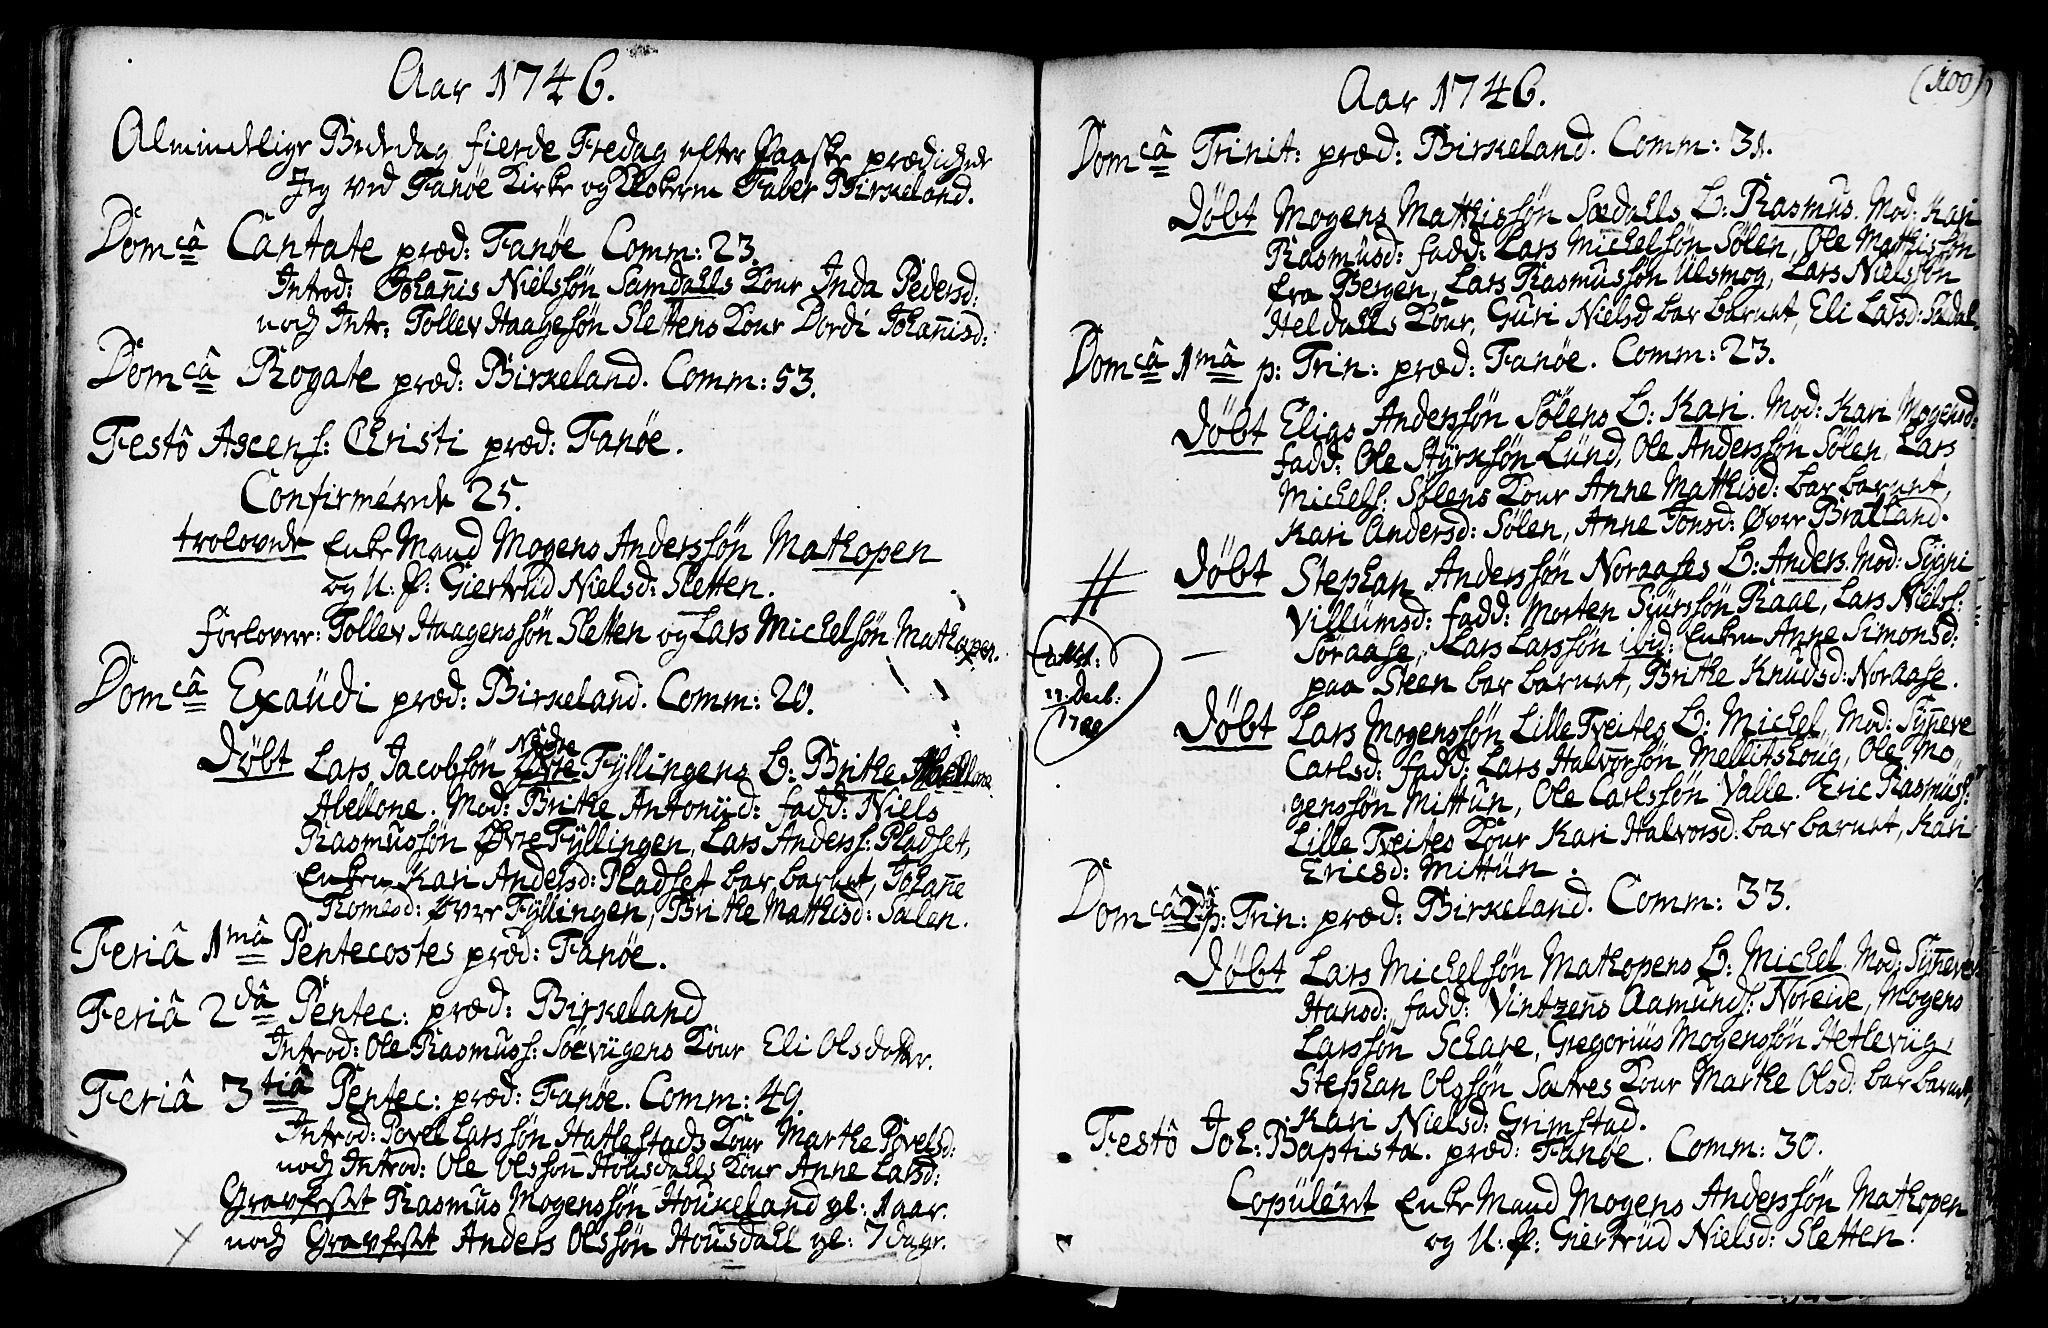 Aar 1746.
Almindelige Bededag fierde Fredag efter Paaske prædichede
Jeg ved Fanøe Kirke og Klokeren Faber Birkeland.
Domcâ Cantate præd: Fanøe Comm: 23.
Introd: Johañis Nielssøn Samdahls Kour Inda Pedersd:
noch Intr: Tollev Haagesøn Slettens Kour Dordi Johañisd:
Domcâ Rogate præd: Birkeland. Comm: 53.
Festô Ascens: Christi præd: Fanøe.
Confirmérede 25.
trolovede Enke Mand Mogens Anderssøn Mathopen
og U: P: Giertrüd Nielsd: Sletten.
Forlovere: Tollev Haagenssøn Sletten og Lars Michelsøn Mathopen.
Domcâ Exaüdi præd: Birkeland. Comm: 20.
Nedre
Døbt Lars Jacobsøn Øvre Fÿllingens B: Brithe
Abellone. Mod: Brithe Antonÿd: fadd: Niels
Rasmussøn Øvre Fÿllingen, Lars Anderss: Pladset,
Enken Kari Andersd: Pladset bar barnet, Johañe
Thomesd: Øvre Fÿllingen, Brithe Mathisd: Sælen.
Feriâ 1mâ Pentecostes præd: Fanøe.
Feriâ 2dâ Pentec: præd: Birkeland
Introd: Ole Rasmuss: Søevügens Kour Eli Olsdotter.
Feriâ 3tiâ Pentec: præd: Fanøe. Comm: 49.
Introd: Povel Larssøn Hathestads Kour Marthe Povelsd:
noch Introd: Ole Olssøn Housdahls Kour Anne Larsd:
Gravfestet Rasmus Mogenssøn Houkeland gl: 1 aar.
noch Gravfestet Anders Olssøn Housdall gl: 7 dage.
(100)
Aar 1746.
Domcâ Trinit: præd: Birkeland. Comm: 31.
Døbt Mogens Matthissøn Sædalls B: Rasmus. Mod: Kari
Rasmusd: fadd: Lars Michelsøn Sølen, Ole Mathissøn
fra Bergen, Lars Rasmussøn Ulsmog, Lars Nielssøn
Heldahls Kour, Guri Nielsd bar barnet, Eli Larsd: Sædal.
Domcâ 1mâ p: Trin: præd: Fanøe. Comm: 23.
Døbt Elias Anderssøn Sølens B: Kari. Mod: Kari Mogensd:
fadd: Ole Stÿrksøn Lünd, Ole Anderssøn Sølen, Lars
Michels: Sølens Kour Anne Mathisd: bar barnet,
Kari Andersd: Sølen, Anne Jonsd: Øvre Bratland.
# Døbt Stephan Anderssøn Noraases B: Anders. Mod: Sygni
Villümsd: fadd: Morten Siürssøn Raae, Lars Nielss:
Søraase, Lars Larssøn ibid: Enken Anne Simonsd:
paa Steen bar barnet, Brithe Knudsd: Noraase.
attest:
Decb:
Døbt Lars Mogenssøn Lille Tveites B: Michel, Mod: Sÿneve
Carlsd: fadd: Lars Halvorsøn Mellitshoug, Ole Mo
genssøn Mittün, Ole Carlssøn Valle. Eric Rasmüs:
Lille Tveites Kour Kari Halvorsd: bar barnet, Kari
Ericsd: Mittün.
Domcâ 2dâ p: Trin: præd: Birkeland. Comm: 33.
Døbt Lars Michelsøn Mathopens B: Michel Mod: Sÿneve
Hansd: fadd: Vintzens Aamunds: Noreide, Mogens
Larssøn Schare, Gregorius Mogenssøn Hetlevüg,
Stephan Olssøn Sætres Kour Marthe Olsd: bar barnet,
Kari Nielsd: Grimstad.
Festô Joh: Baptistæ. præd: Fanøe. Comm: 30.
Copülért Enke Mand Mogens Anderssøn Mathopen
og U: P: Giertrüd Nielsd: Sletten.